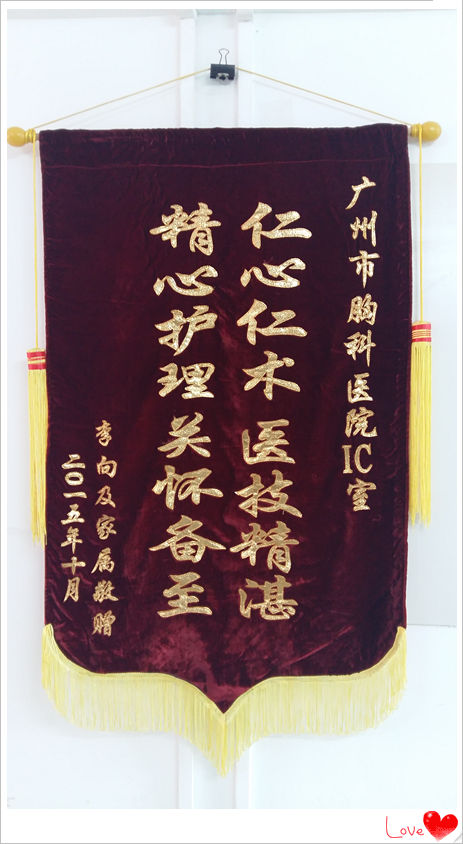 广州市胸科医院IC室
仁心仁术 医技精湛
精心护理 关怀备至
李向及家属敬赠
二〇一五年十月
Love